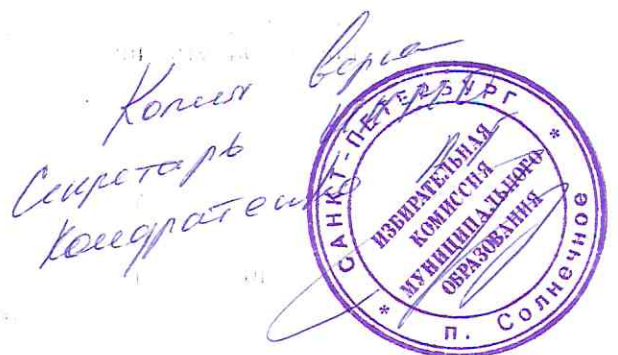 Копия верна
Секретарь
Кондратенко
САНКТ-ПЕТЕРБУРГ
ИЗБИРАТЕЛЬНАЯ
КОМИССИЯ
МУНИЦИПАЛЬНОГО
ОБРАЗОВАНИЯ
* п. Солнечное *